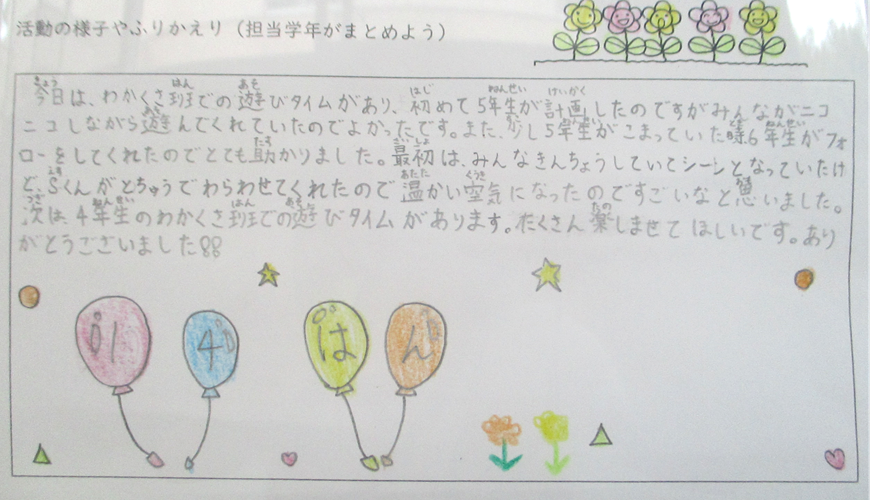 活動の様子やふりかえり（担当学年がまとめよう）
今日は、わかくさ班での遊びタイムがあり、初めて5年生が計画したのですがみんながニコ
ニコしながら遊んでくれていたのでよかったです。また、少し5年生がこまっていた時6年生がフォ
ローをしてくれたのでとても助かりました。最初は、みんなきんちょうしていてシーンとなっていたけ
ど、Sくんがとちゅうでわらわせてくれたので温かい空気になったのですごいなと思いました。
次は、4年生のわかくさ班での遊びタイムがあります。たくさん楽しませてほしいです。あり
がとうございました
4 はん